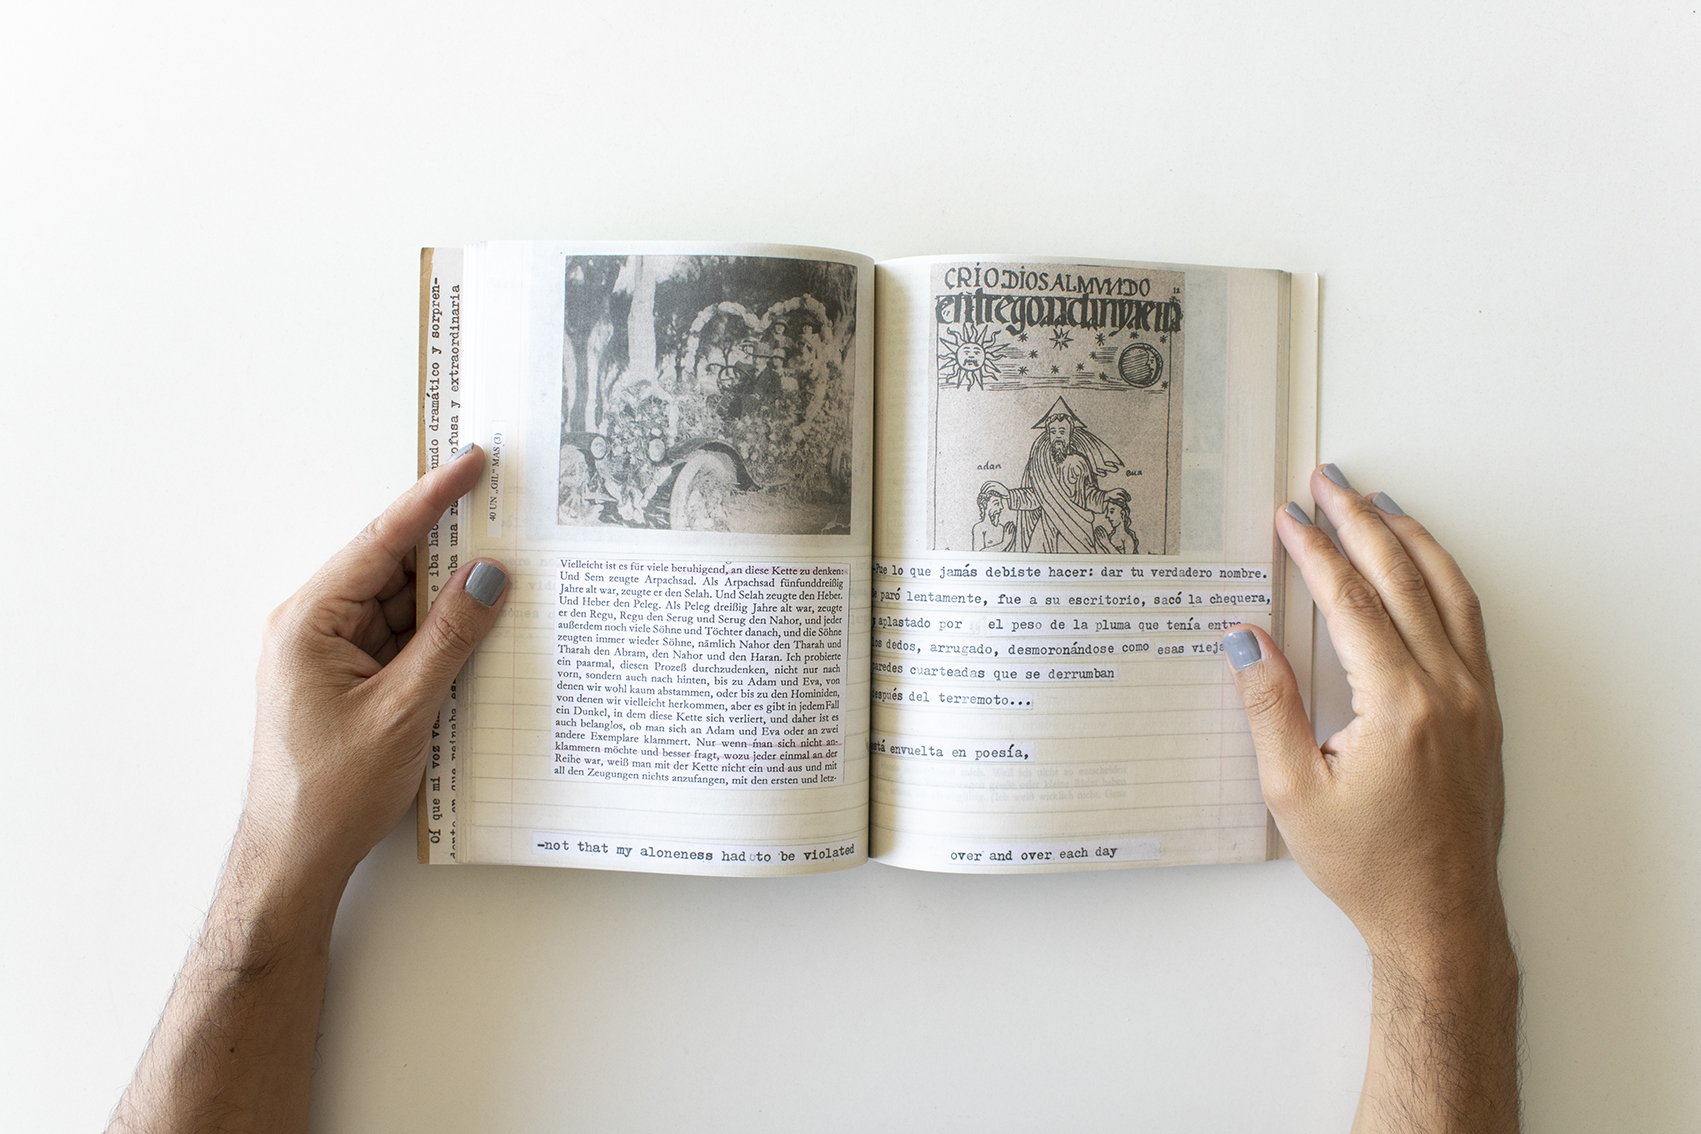 Oí que mi voz
undo dramático y sorpren-
ofusa y extraordinaria
40 UN „GIL“ MAS (3)
Vielleicht ist es für viele beruhigend, an diese Kette zu denken:
Und Sem zeugte Arpachsad. Als Arpachsad fünfunddreißig
Jahre alt war, zeugte er den Selah. Und Selah zeugte den Heber.
Und Heber den Peleg. Als Peleg dreißig Jahre alt war, zeugte
er den Regu, Regu den Serug und Serug den Nahor, und jeder
außerdem noch viele Söhne und Töchter danach, und die Söhne
zeugten immer wieder Söhne, nämlich Nahor den Tharah und
Tharah den Abram, den Nahor und den Haran. Ich probierte
ein paarmal, diesen Prozeß durchzudenken, nicht nur nach
vorn, sondern auch nach hinten, bis zu Adam und Eva, von
denen wir wohl kaum abstammen, oder bis zu den Hominiden,
von denen wir vielleicht herkommen, aber es gibt in jedem Fall
ein Dunkel, in dem diese Kette sich verliert, und daher ist es
auch belanglos, ob man sich an Adam und Eva oder an zwei
andere Exemplare klammert. Nur wenn man sich nicht an-
klammern möchte und besser fragt, wozu jeder einmal an der
Reihe war, weiß man mit der Kette nicht ein und aus und mit
all den Zeugungen nichts anzufangen, mit den ersten und letz-
—not that my aloneness had to be violated
CRÍO DÍOS AL MVNDO
12
adan
eua
-Fue lo que jamás debiste hacer: dar tu verdadero nombre.
paró lentamente, fue a su escritorio, sacó la chequera,
aplastado por el peso de la pluma que tenía entre
dedos, arrugado, desmoronándose como esas vieja
paredes cuarteadas que se derrumban
después del terremoto...
está envuelta en poesía,
over and over each day